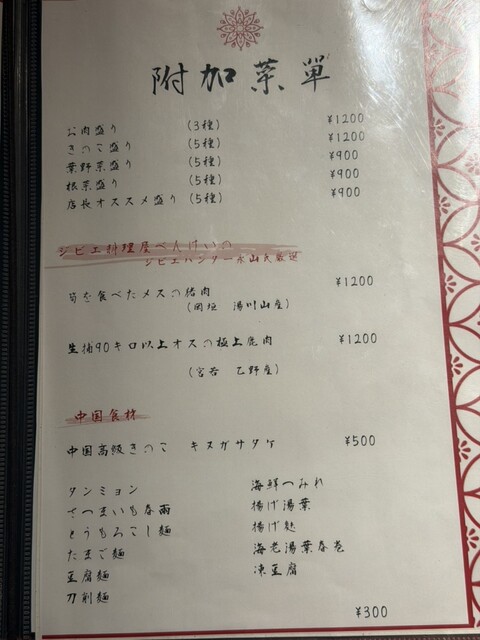 附加菜単
お肉盛り (3種) ¥1200
きのこ盛り (5種) ¥1200
葉野菜盛り (5種) ¥900
根菜盛り (5種) ¥900
店長オススメ盛り (5種) ¥900
ジビエ料理屋べんけいの
ジビエハンター永山氏厳選
筍を食べたメスの猪肉 ¥1200
(岡垣 湯川山産)
生捕90キロ以上オスの極上鹿肉 ¥1200
(宮若 乙野産)
中国食材
中国高級きのこ キヌガサタケ ¥500
タンミョン 海鮮つみれ
さつまいも春雨 揚げ湯葉
とうもろこし麺 揚げ麸
たまご麺 海老湯葉春巻
豆腐麺 凍豆腐
刀削麺
¥300